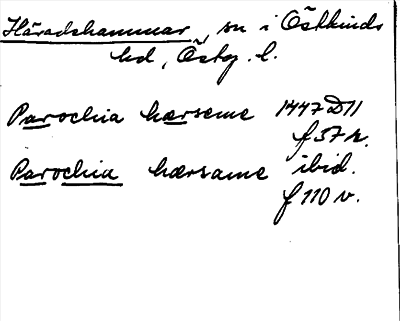 Häradshammar, sn i Östkinds
hd, Östg. l.
Parochia hærseme 1447 D11
f 57 r.
Parochia hærsame ibid.
f 110 v.